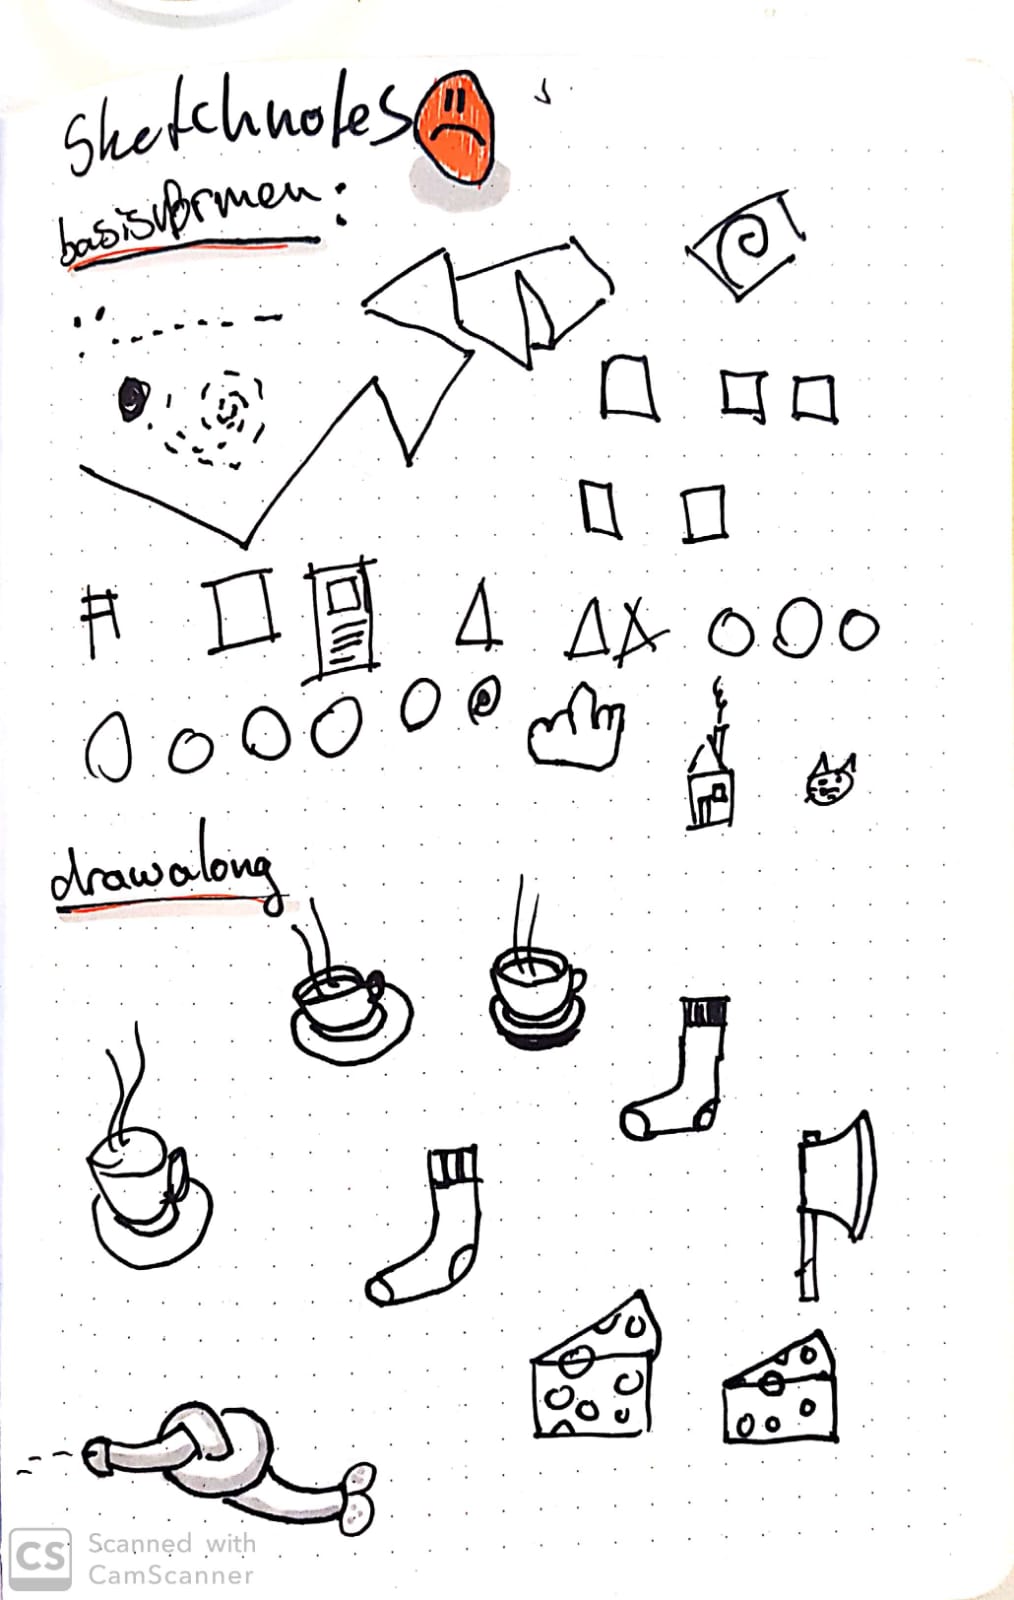 Sketchnotes
basisvormen:
drawalong
CS Scanned with
CamScanner